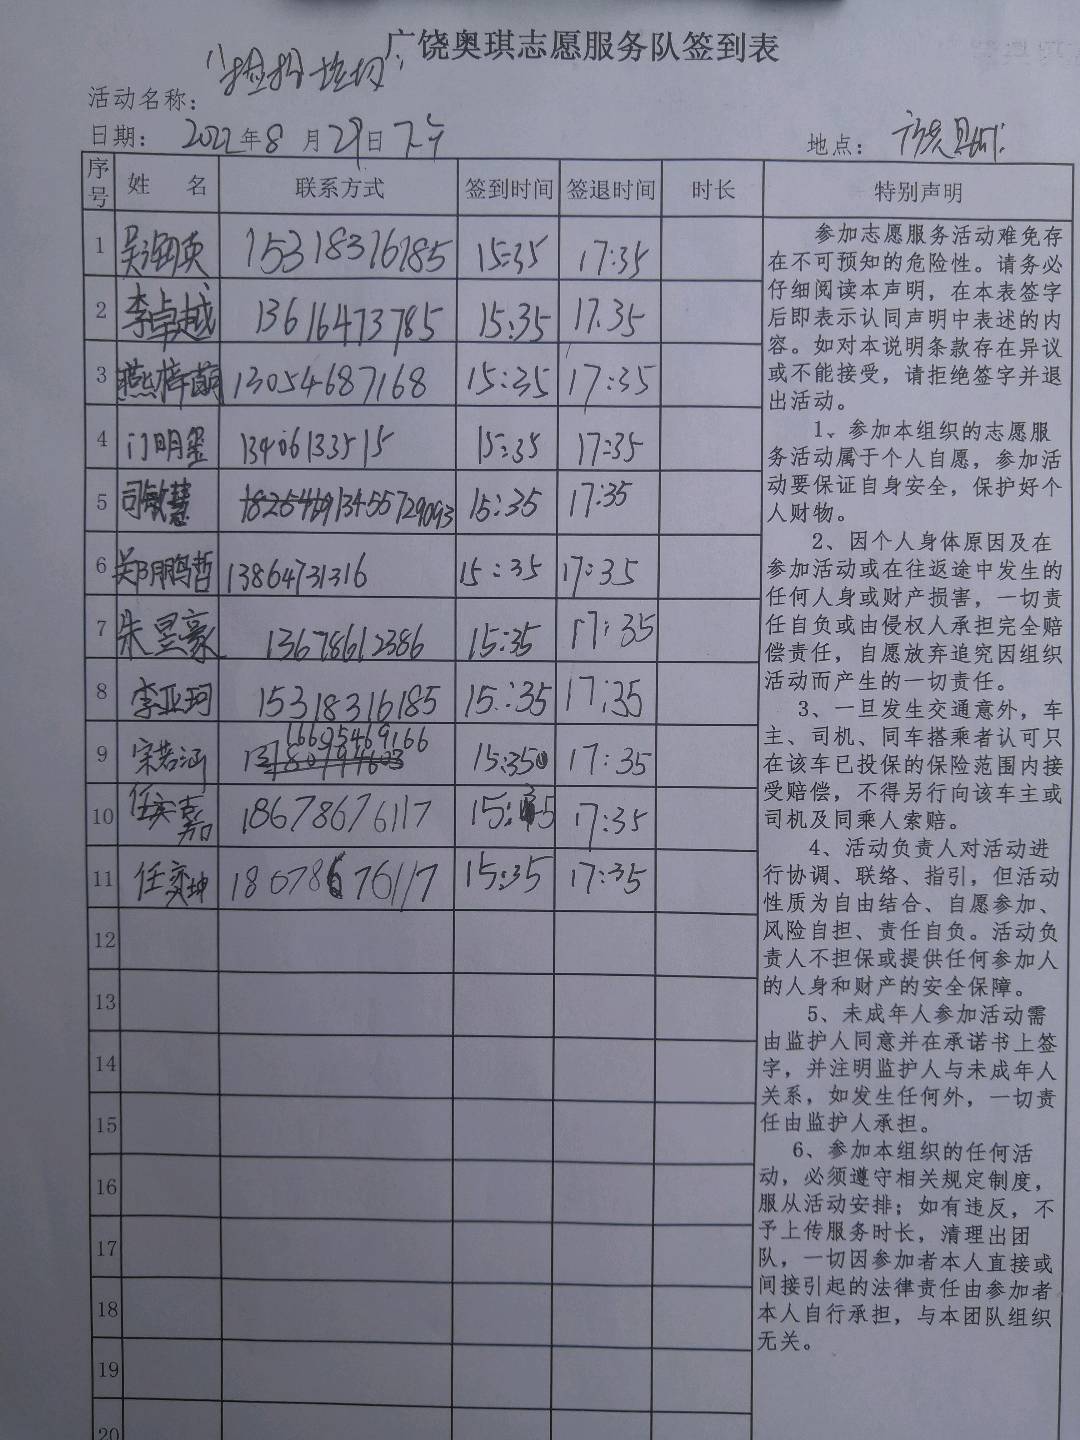 广饶奥琪志愿服务队签到表
活动名称：
日期： 2022年8月29日下午 地点：
序号 姓 名 联系方式 签到时间 签退时间 时长 特别声明
1 15318316185 15:35 17:35
2 李卓越 13616473785 15:35 17:35
3 燕梓萌 13054687168 15:35 17:35
4 门明玺 13406133515 15:35 17:35
5 司敏慧 13455729093 15:35 17:35
6 郑鹏哲 13864731316 15:35 17:35
7 朱昱豪 13678612386 15:35 17:35
8 李亚珂 15318316185 15:35 17:35
9 宋若涵 16695469166 15:35 17:35
10 任奕嘉 18678676117 17:35
11 任奕坤 18678676117 15:35 17:35
12
13
14
15
16
17
18
19
20
参加志愿服务活动难免存
在不可预知的危险性。请务必
仔细阅读本声明，在本表签字
后即表示认同声明中表述的内
容。如对本说明条款存在异议
或不能接受，请拒绝签字并退
出活动。
1、参加本组织的志愿服
务活动属于个人自愿，参加活
动要保证自身安全，保护好个
人财物。
2、因个人身体原因及在
参加活动或在往返途中发生的
任何人身或财产损害，一切责
任自负或由侵权人承担完全赔
偿责任，自愿放弃追究因组织
活动而产生的一切责任。
3、一旦发生交通意外，车
主、司机、同车搭乘者认可只
在该车已投保的保险范围内接
受赔偿，不得另行向该车主或
司机及同乘人索赔。
4、活动负责人对活动进
行协调、联络、指引，但活动
性质为自由结合、自愿参加、
风险自担、责任自负。活动负
责人不担保或提供任何参加人
的人身和财产的安全保障。
5、未成年人参加活动需
由监护人同意并在承诺书上签
字，并注明监护人与未成年人
关系，如发生任何外，一切责
任由监护人承担。
6、参加本组织的任何活
动，必须遵守相关规定制度，
服从活动安排；如有违反，不
予上传服务时长，清理出团
队，一切因参加者本人直接或
间接引起的法律责任由参加者
本人自行承担，与本团队组织
无关。